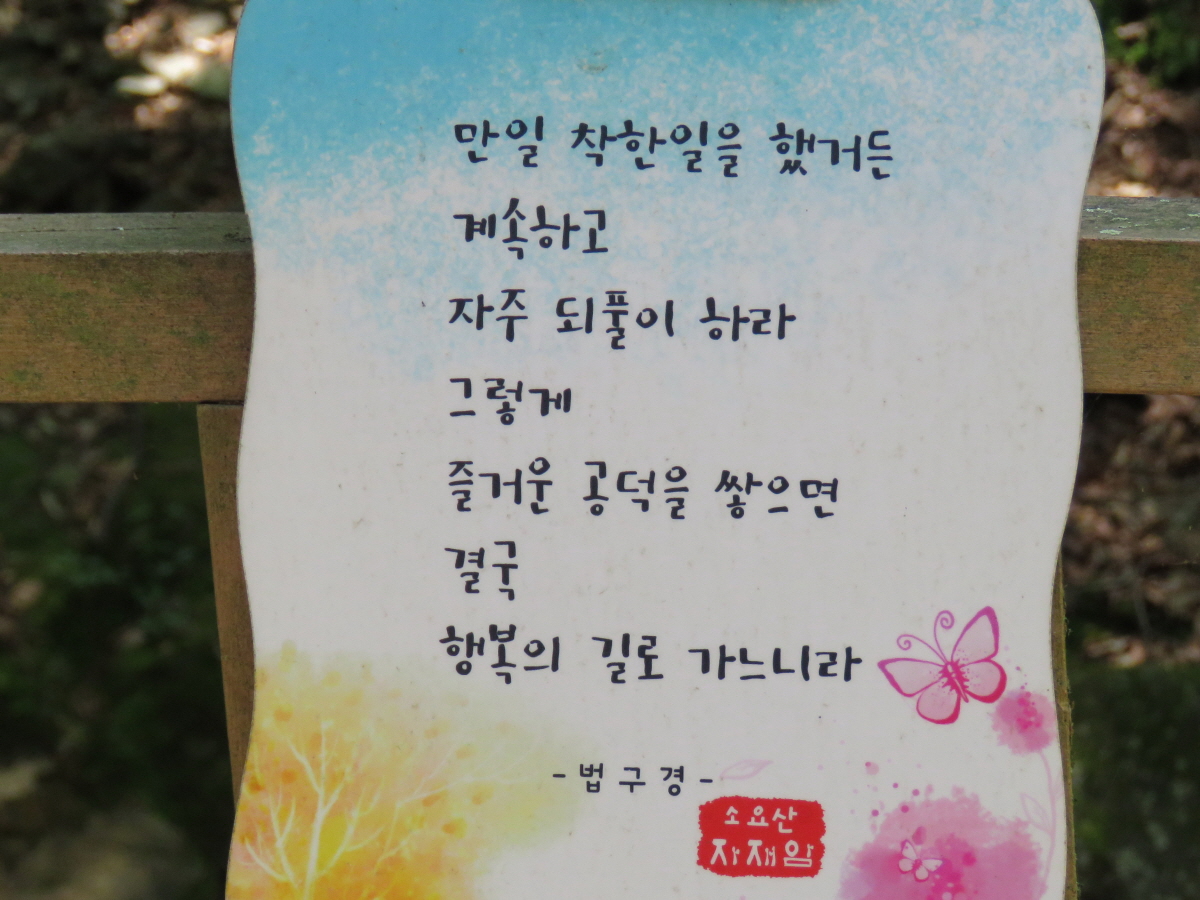 만일 착한일을 했거든
계속하고
자주 되풀이 하라
그렇게
즐거운 공덕을 쌓으면
결국
행복의 길로 가느니라
-법구경-
소요산
자재암